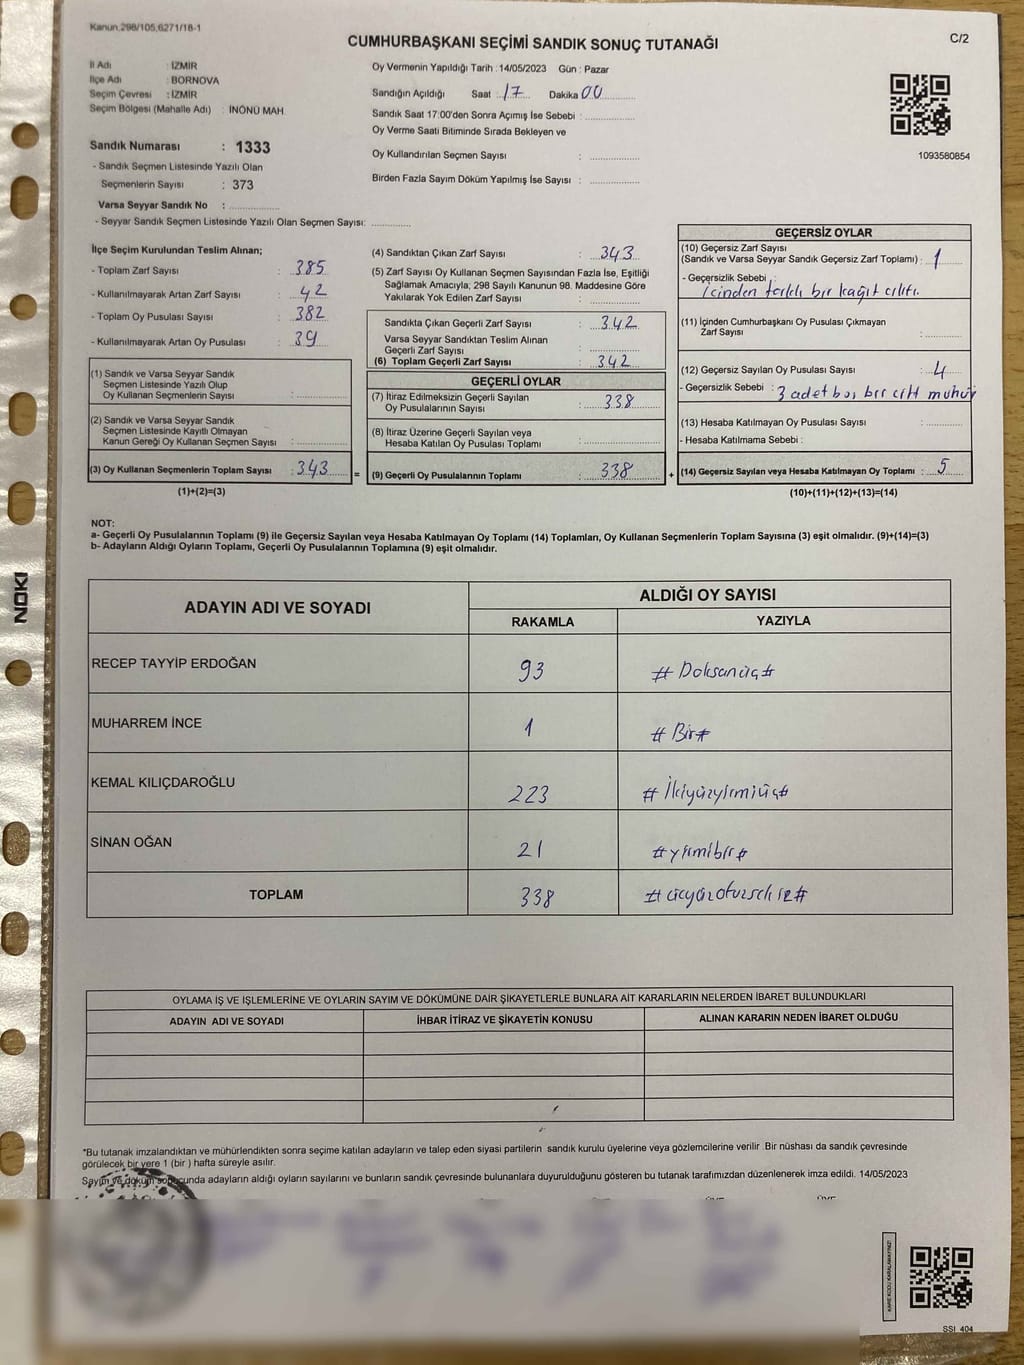 Kanun,298/105,6271/18-1
C/2
CUMHURBAŞKANI SEÇİMİ SANDIK SONUÇ TUTANAĞI
İl Adı : İZMİR
İlçe Adı : BORNOVA
Seçim Çevresi : İZMİR
Seçim Bölgesi (Mahalle Adı) : İNÖNÜ MAH.
Sandık Numarası : 1333
- Sandık Seçmen Listesinde Yazılı Olan
Seçmenlerin Sayısı : 373
Varsa Seyyar Sandık No :
- Seyyar Sandık Seçmen Listesinde Yazılı Olan Seçmen Sayısı:
Oy Vermenin Yapıldığı Tarih : 14/05/2023 Gün : Pazar
Sandığın Açıldığı Saat : 17 Dakika 00
Sandık Saat 17:00'den Sonra Açımış İse Sebebi :
Oy Verme Saati Bitiminde Sırada Bekleyen ve
Oy Kullandırılan Seçmen Sayısı :
Birden Fazla Sayım Döküm Yapılmış İse Sayısı :
1093580854
İlçe Seçim Kurulundan Teslim Alınan;
- Toplam Zarf Sayısı : 385
- Kullanılmayarak Artan Zarf Sayısı : 42
- Toplam Oy Pusulası Sayısı : 382
- Kullanılmayarak Artan Oy Pusulası : 39
(1) Sandık ve Varsa Seyyar Sandık
Seçmen Listesinde Yazılı Olup
Oy Kullanan Seçmenlerin Sayısı :
(2) Sandık ve Varsa Seyyar Sandık
Seçmen Listesinde Kayıtlı Olmayan
Kanun Gereği Oy Kullanan Seçmen Sayısı :
(3) Oy Kullanan Seçmenlerin Toplam Sayısı : 343
(1)+(2)=(3)
(4) Sandıktan Çıkan Zarf Sayısı : 343
(5) Zarf Sayısı Oy Kullanan Seçmen Sayısından Fazla İse, Eşitliği
Sağlamak Amacıyla; 298 Sayılı Kanunun 98. Maddesine Göre
Yakılarak Yok Edilen Zarf Sayısı :
Sandıkta Çıkan Geçerli Zarf Sayısı : 342
Varsa Seyyar Sandıktan Teslim Alınan
Geçerli Zarf Sayısı :
(6) Toplam Geçerli Zarf Sayısı : 342
GEÇERLİ OYLAR
(7) İtiraz Edilmeksizin Geçerli Sayılan
Oy Pusulalarının Sayısı : 338
(8) İtiraz Üzerine Geçerli Sayılan veya
Hesaba Katılan Oy Pusulası Toplamı :
= (9) Geçerli Oy Pusulalarının Toplamı : 338 +
GEÇERSİZ OYLAR
(10) Geçersiz Zarf Sayısı
(Sandık ve Varsa Seyyar Sandık Geçersiz Zarf Toplamı) : 1
- Geçersizlik Sebebi :
içinden farklı bir kağıt çıktı.
(11) İçinden Cumhurbaşkanı Oy Pusulası Çıkmayan
Zarf Sayısı :
(12) Geçersiz Sayılan Oy Pusulası Sayısı : 4
- Geçersizlik Sebebi : 3 adet boş bir çift mühür
(13) Hesaba Katılmayan Oy Pusulası Sayısı :
- Hesaba Katılmama Sebebi :
(14) Geçersiz Sayılan veya Hesaba Katılmayan Oy Toplamı : 5
(10)+(11)+(12)+(13)=(14)
NOT:
a- Geçerli Oy Pusulalarının Toplamı (9) ile Geçersiz Sayılan veya Hesaba Katılmayan Oy Toplamı (14) Toplamları, Oy Kullanan Seçmenlerin Toplam Sayısına (3) eşit olmalıdır. (9)+(14)=(3)
b- Adayların Aldığı Oyların Toplamı, Geçerli Oy Pusulalarının Toplamına (9) eşit olmalıdır.
ADAYIN ADI VE SOYADI
ALDIĞI OY SAYISI
RAKAMLA YAZIYLA
RECEP TAYYİP ERDOĞAN 93 # Doksanüç #
MUHARREM İNCE 1 # Bir #
KEMAL KILIÇDAROĞLU 223 # İkiyüzyirmiüç #
SİNAN OĞAN 21 # yirmibir #
TOPLAM 338 # üçyüzotuzsekiz #
OYLAMA İŞ VE İŞLEMLERİNE VE OYLARIN SAYIM VE DÖKÜMÜNE DAİR ŞİKAYETLERLE BUNLARA AİT KARARLARIN NELERDEN İBARET BULUNDUKLARI
ADAYIN ADI VE SOYADI İHBAR İTİRAZ VE ŞİKAYETİN KONUSU ALINAN KARARIN NEDEN İBARET OLDUĞU
*Bu tutanak imzalandıktan ve mühürlendikten sonra seçime katılan adayların ve talep eden siyasi partilerin sandık kurulu üyelerine veya gözlemcilerine verilir. Bir nüshası da sandık çevresinde
görülecek bir yere 1 (bir ) hafta süreyle asılır.
Sayım ve döküm sonucunda adayların aldığı oyların sayılarını ve bunların sandık çevresinde bulunanlara duyurulduğunu gösteren bu tutanak tarafımızdan düzenlenerek imza edildi. 14/05/2023
KARE KODU KARALAMAYINIZ!
SSI_404
NOKI